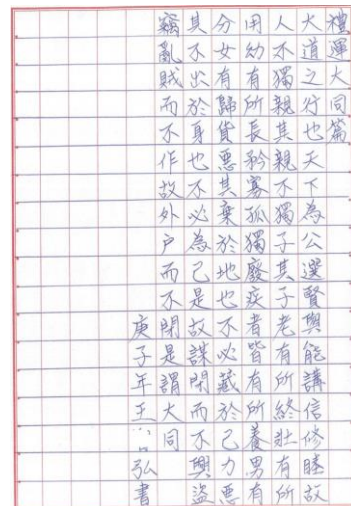 禮運大同篇
大道之行也天下為公選賢與能講信修睦故
人不獨親其親不獨子其子老有所終壯有所
用幼有所長矜寡孤獨廢疾者皆有所養男有
分女有歸貨惡其棄於地也不必藏於己力惡
其不出於身也不必為己是故謀閉而不興盜
竊亂賊而不作故外戶而不閉是謂大同
庚子年王弘書